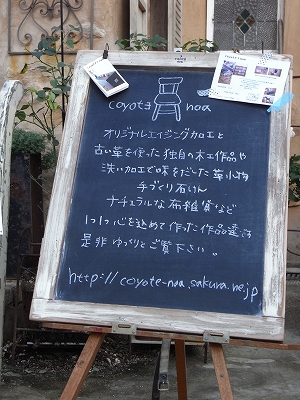 coyote noa
オリジナルエイジング加工と
古い革を使った独自の木工作品や
洗い加工で味をだした革小物
手づくり石けん
ナチュラルな布雑貨など
1つ1つ心を込めて作った作品達です
是非ゆっくりとご覧下さい。
http://coyote-noa.sakura.ne.jp